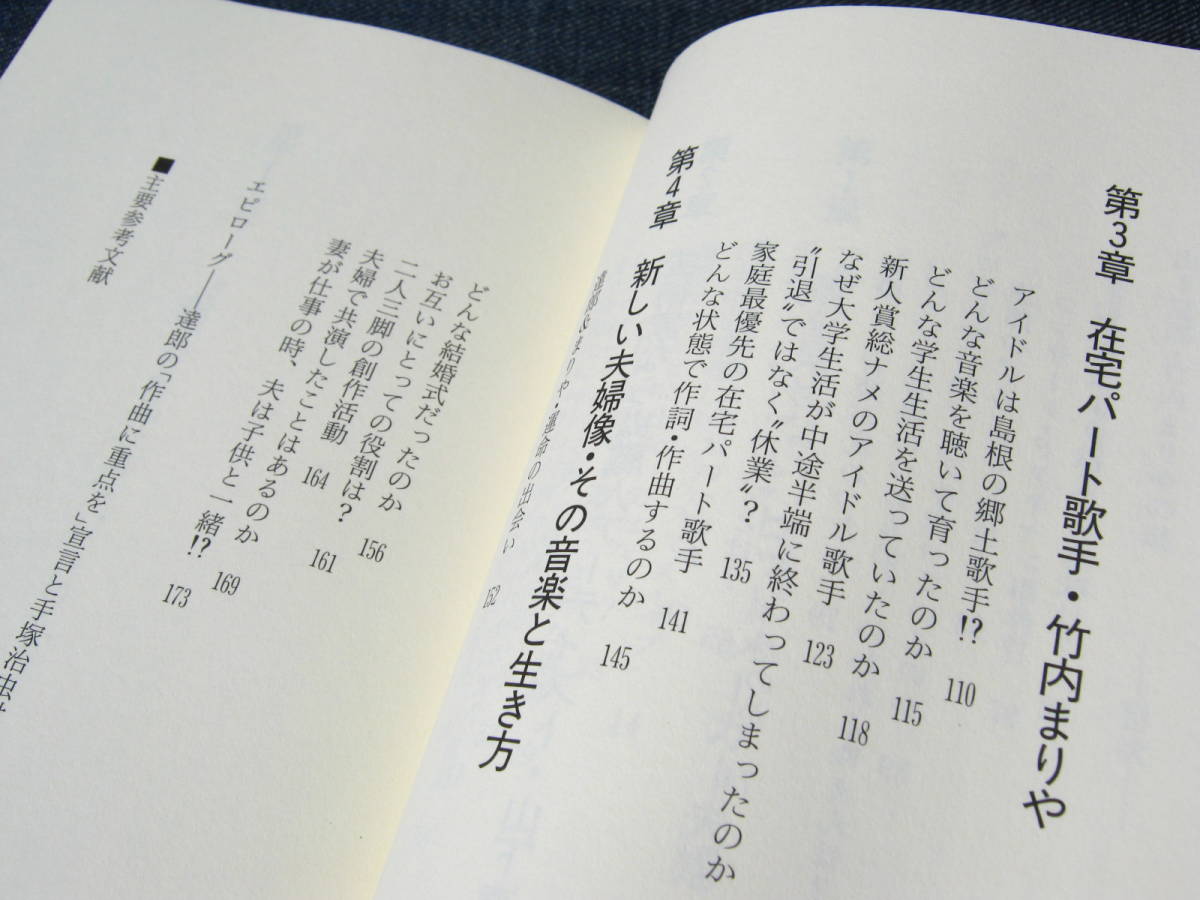 第3章 在宅パート歌手・竹内まりや
アイドルは島根の郷土歌手!? 110
どんな音楽を聴いて育ったのか 115
どんな学生生活を送っていたのか 118
新人賞総ナメのアイドル歌手 123
なぜ大学生活が中途半端に終わってしまったのか
〝引退〟ではなく〝休業〟? 135
家庭最優先の在宅パート歌手 141
どんな状態で作詞・作曲するのか 145
第4章 新しい夫婦像・その音楽と生き方
まりや・運命の出会い 152
どんな結婚式だったのか 156
お互いにとっての役割は? 161
二人三脚の創作活動 164
夫婦で共演したことはあるのか 169
妻が仕事の時、夫は子供と一緒!? 173
エピローグ──達郎の「作曲に重点を」宣言と手塚治虫
■主要参考文献